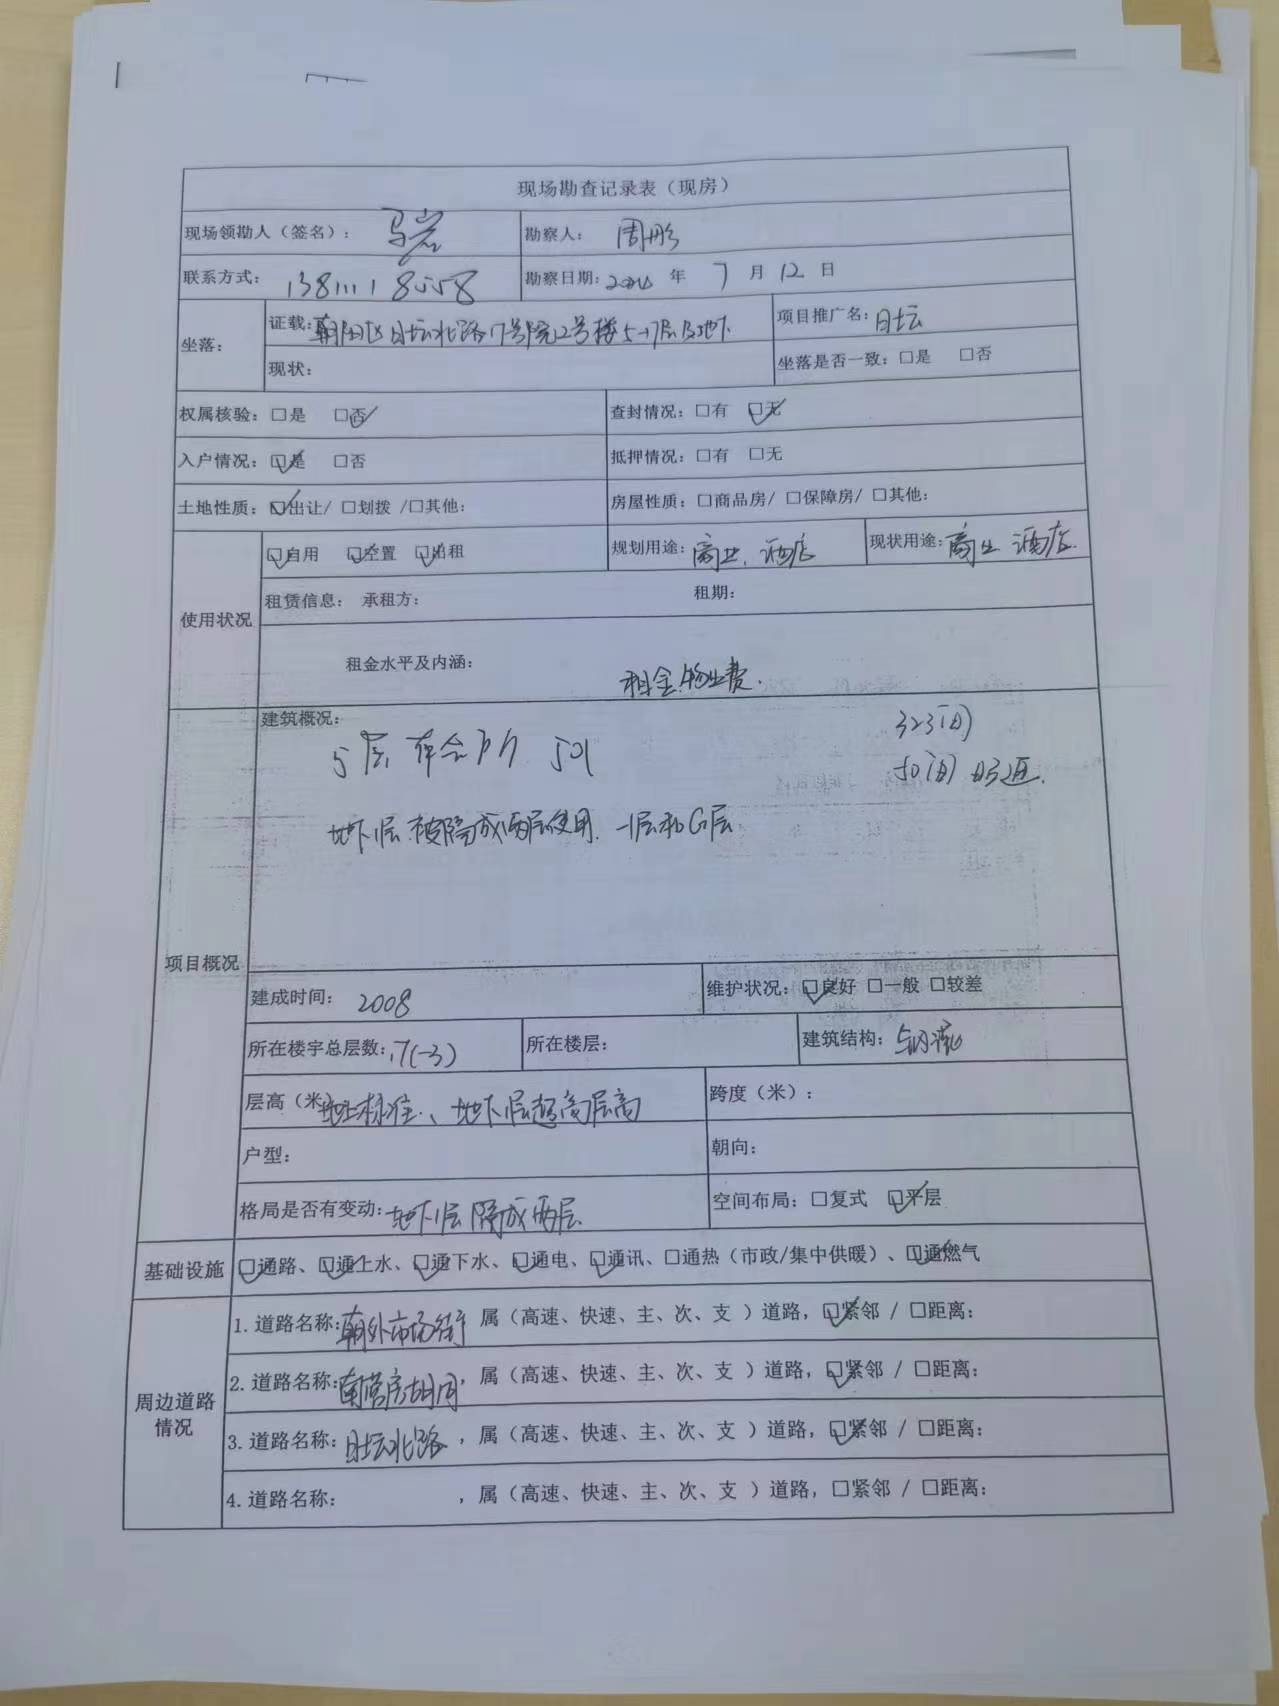 现场勘查记录表（现房）
现场领勘人（签名）：马岩 勘察人：周彤
联系方式： 勘察日期： 年 7 月 12 日
坐落： 证载：朝阳区日坛北路17号院2号楼5-17层及地下 项目推广名：日坛
现状： 坐落是否一致：□是 □否
权属核验：□是 ☑否 查封情况：□有 ☑无
入户情况：☑是 □否 抵押情况：□有 □无
土地性质：☑出让/ □划拨 /□其他： 房屋性质：□商品房/ □保障房/ □其他：
使用状况 ☑自用 ☑空置 ☑出租 规划用途：商业、酒店 现状用途：商业 酒店
租赁信息： 承租方： 租期：
租金水平及内涵： 租金 物业费.
项目概况 建筑概况： 323间
5层 501 50间
地下1层被隔成两层使用. 一层和G层
建成时间：2008 维护状况：☑良好 □一般 □较差
所在楼宇总层数：17(-3) 所在楼层： 建筑结构：钢混
层高（米 地上标准、地下1层超高层高 跨度（米）：
户型： 朝向：
格局是否有变动：地下1层隔成两层 空间布局：□复式 ☑平层
基础设施 ☑通路、☑通上水、☑通下水、☑通电、☑通讯、□通热（市政/集中供暖）、☑通燃气
周边道路情况 1.道路名称：朝外市场街 属（高速、快速、主、次、支 ）道路，☑紧邻 / □距离：
2.道路名称：南营房胡同，属（高速、快速、主、次、支 ）道路，☑紧邻 / □距离：
3.道路名称：日坛北路 ，属（高速、快速、主、次、支 ）道路，☑紧邻 / □距离：
4.道路名称： ，属（高速、快速、主、次、支 ）道路，□紧邻 / □距离：